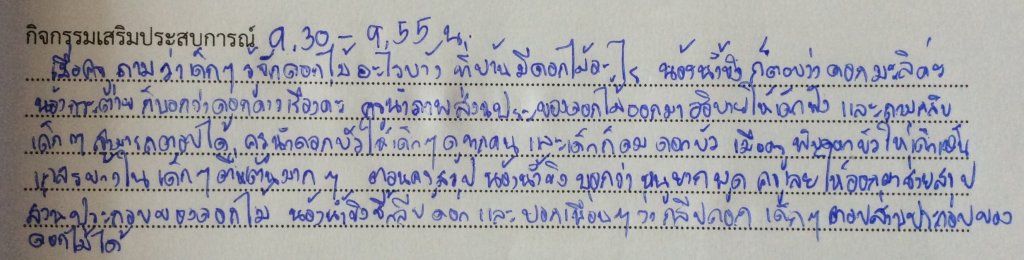 กิจกรรมเสริมประสบการณ์ 9.30 - 9.55 น.
เมื่อครูถามว่าเด็กๆ รู้จักดอกไม้อะไรบ้าง ที่บ้านมีดอกไม้อะไร น้องน้ำขิง ก็ตอบว่า ดอกมะลิค่ะ
น้องกระต่าย ก็บอกว่าดอกดาวเรืองคะ ครูนำภาพส่วนประกอบของดอกไม้ออกมา อธิบายให้เด็กฟัง และถามกลับ
เด็กๆ สามารถตอบได้ ครูนำดอกบัวให้เด็กๆ ดูทุกคน และเด็กก็ดม ดอกบัว เมื่อครูผ่าดอกบัวให้เด็กเห็น
เกสรข้างใน เด็กๆ ตื่นเต้นมากๆ ตอนครูสรุป น้องน้ำขิง บอกว่า หนูอยากพูด ครูเลยให้ออกมาช่วยสรุป
ส่วนประกอบของดอกไม้ น้องน้ำขิงชี้กลีบดอก และบอกเพื่อนๆ ว่า กลีบดอก เด็กๆ ตอบส่วนประกอบของ
ดอกไม้ได้